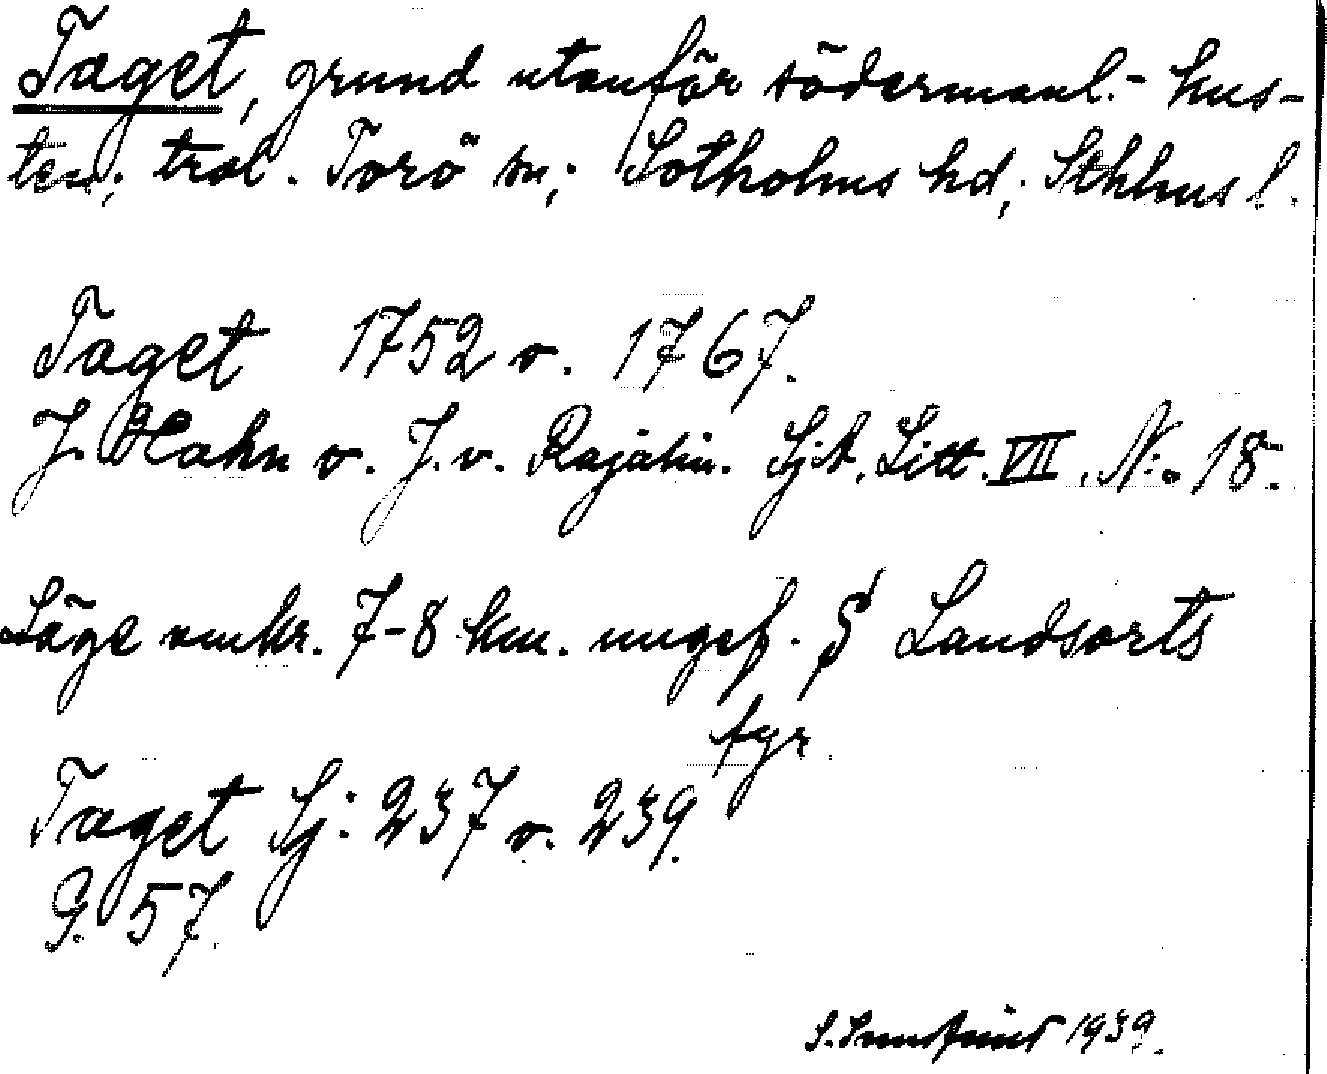 Taget, grund utanför södermanl.- kus-
ten; trol. Torö sn; Sotholms hd; Sthlms l.
Taget 1752 o. 1767.
J. Hahn o. J. v. Rajalin. Sjk. Litt. VII. N:o 18.
Läge omkr. 7-8 km. ungef. S Landsorts
fyr.
Taget Sj: 237 o. 239.
G. 57.
S. 1939.